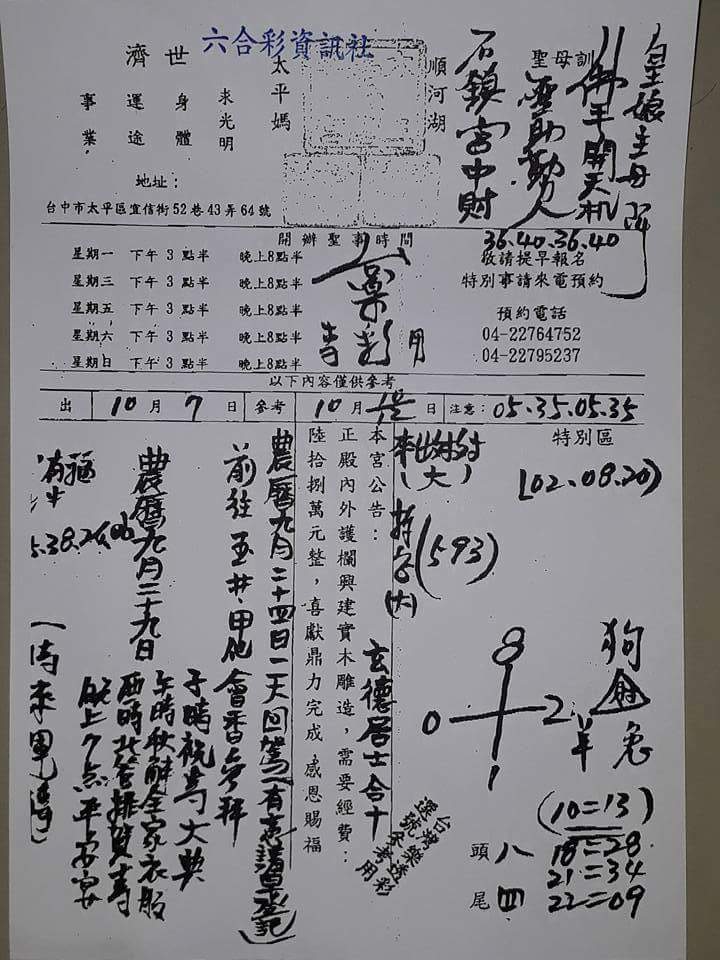 六合彩資訊社
濟世
事業
運途
身體
求光明
太平媽
順河湖
聖母訓
皇娘主母
佛手開天机
聖助勤人
石鎮宮中財
36.40.36.40
地址：
台中市太平區宜信街52巷43弄64號
開辦聖事時間
星期一 下午3點半 晚上8點半
星期三 下午3點半 晚上8點半
星期五 下午3點半 晚上8點半
星期六 下午3點半 晚上8點半
星期日 下午3點半 晚上8點半
敬請提早報名
特別事請來電預約
預約電話
04-22764752
04-22795237
以下內容僅供參考
出 10月7日 參考 10月 日 注意：05.35.05.35
特別區
(02.08.20)
(大)
(593)
本宮公告：
正殿內外護欄興建實木雕造，需要經費：
陸拾捌萬元整，喜獻鼎力完成 感恩賜福
玄德居士合十
農曆九月二十四日一天回駕(有意請早登記)
前往玉井甲仙會香參拜
農曆九月二十九日
子時祝壽大典
午時秋解全家衣服
酉時北管排賀壽
晚上7点平安宴
8
0
2
1
狗
羊
兔
(10=13)
18=28
21=34
22=09
頭 八
尾 四
台灣樂透彩
選號參考用